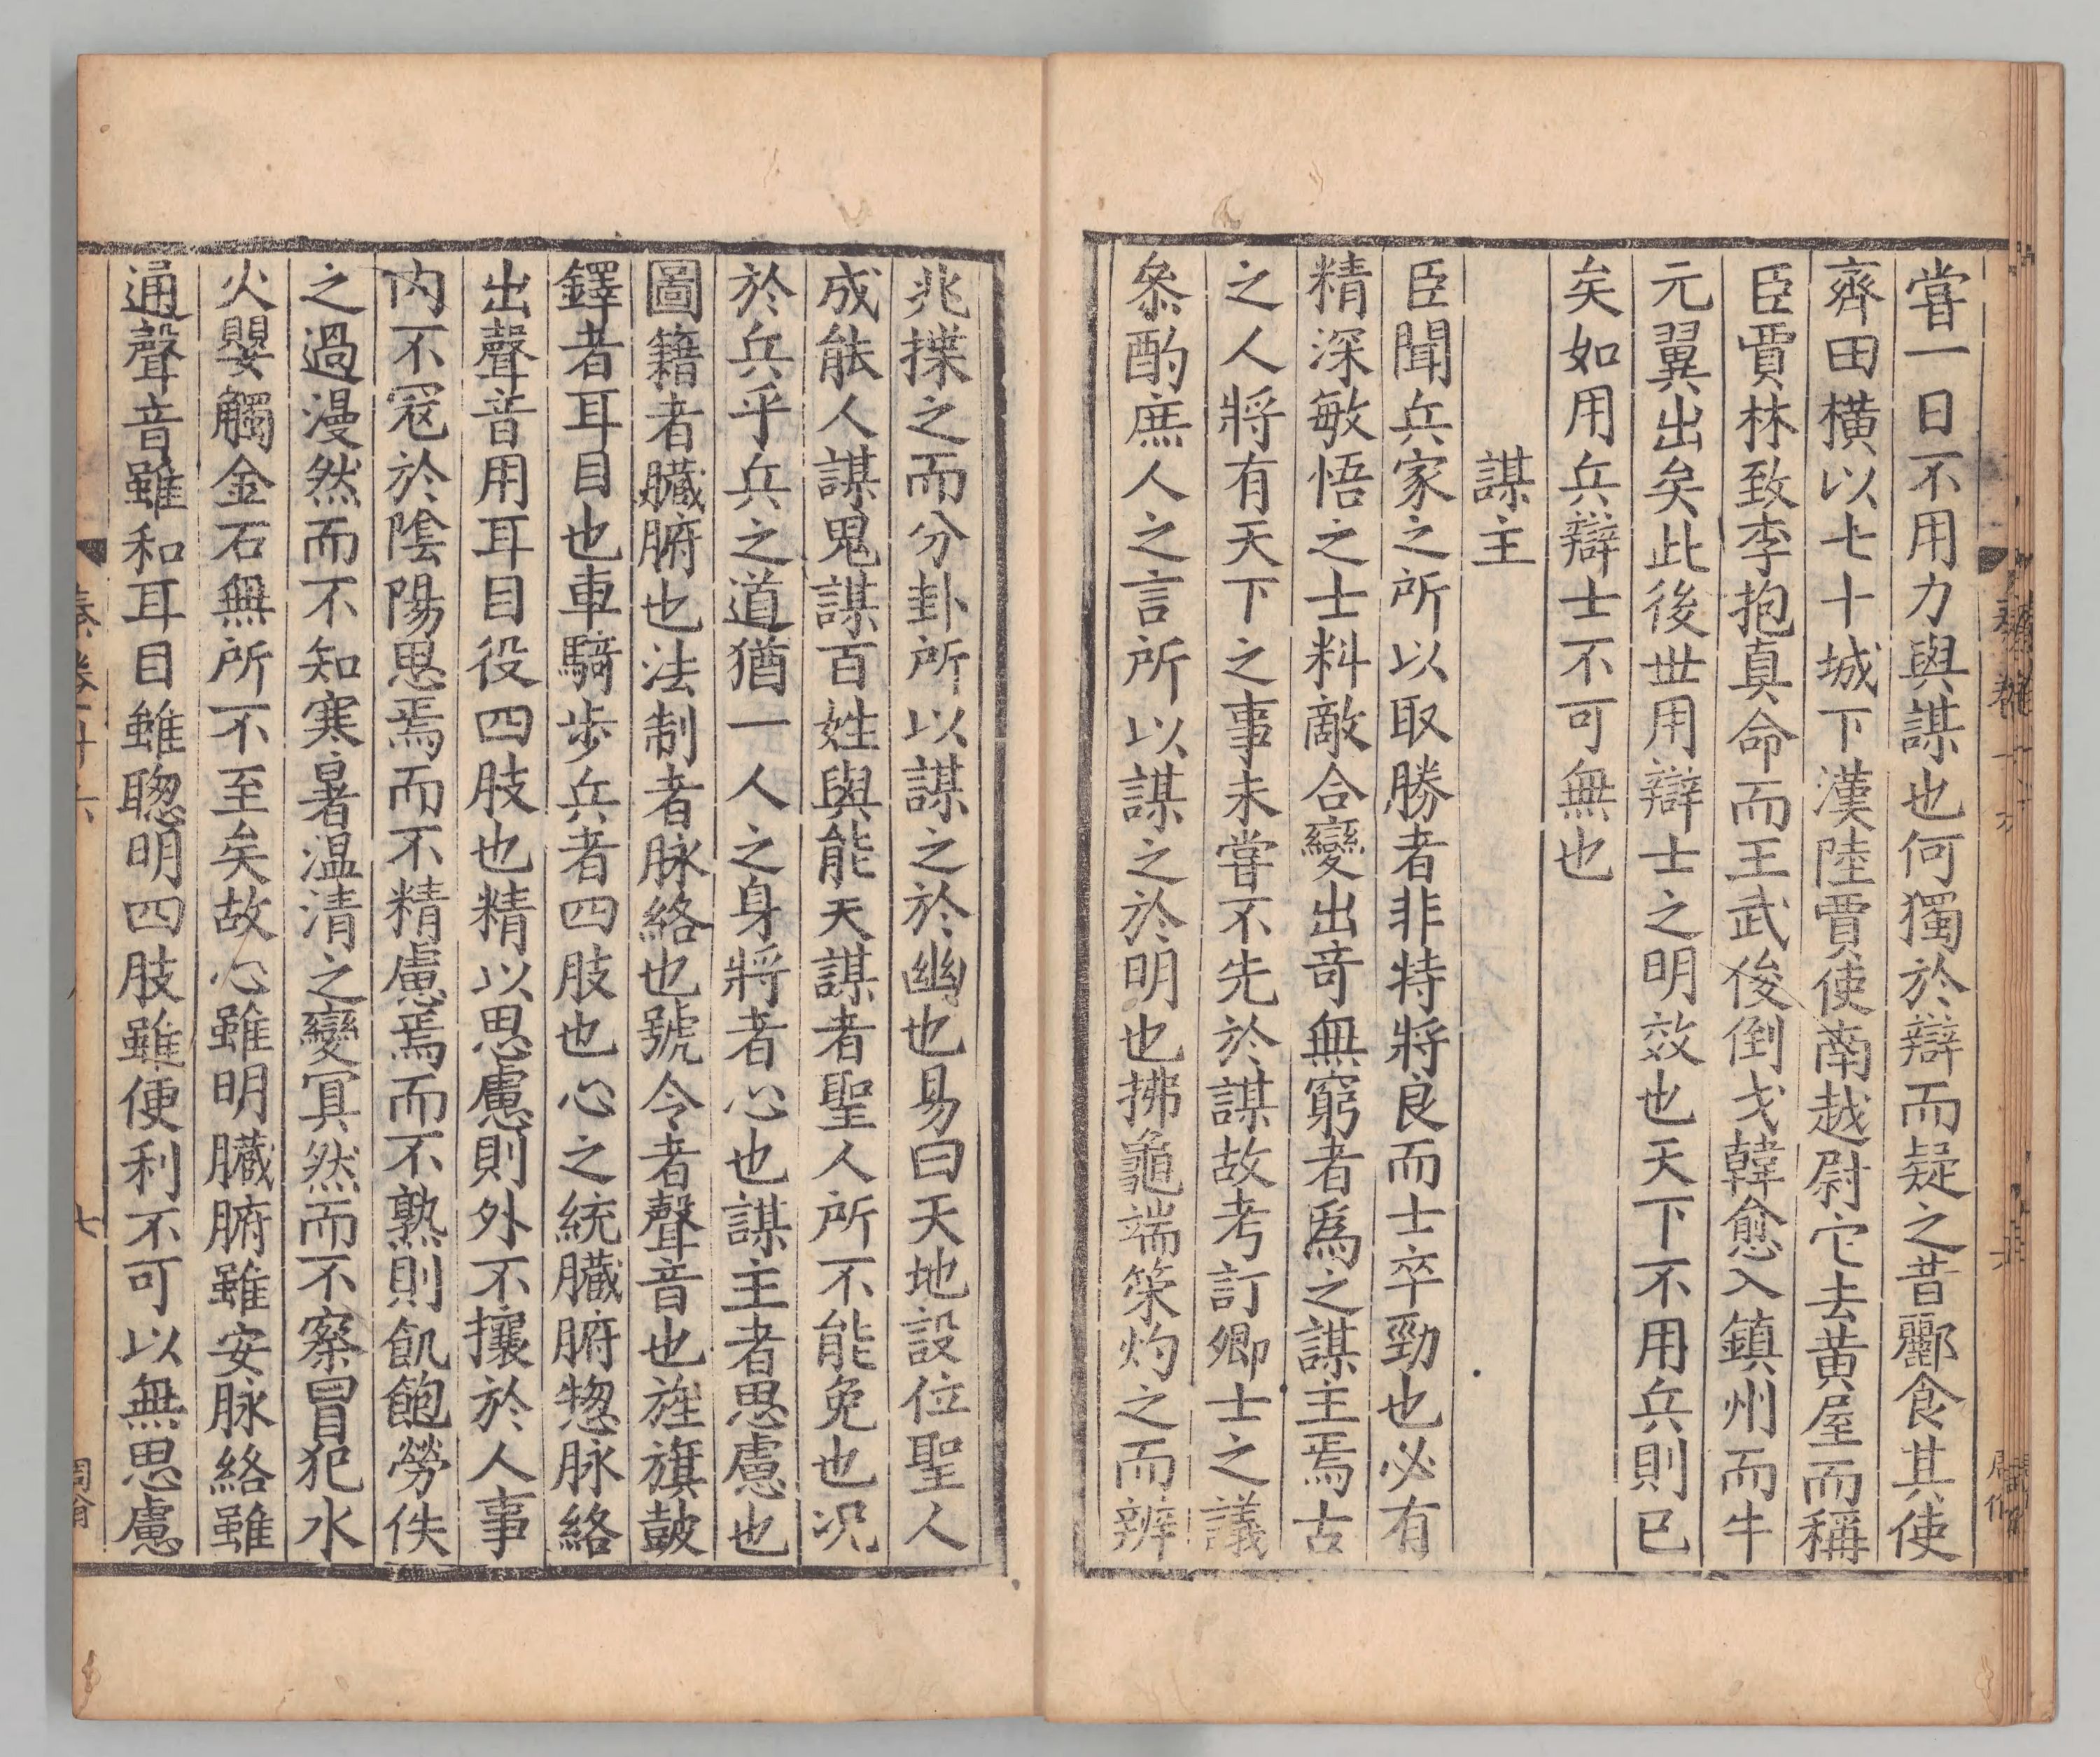 嘗一日不用力與謀也何獨於辯而疑之昔酈食其使
齊田橫以七十城下漢陸賈使南越尉它去黄屋而稱
臣賈林致李抱真命而王武俊倒戈韓愈入鎮州而牛
元翼出矣此後世用辯士之明效也天下不用兵則已
矣如用兵辯士不可無也
謀主
臣聞兵家之所以取勝者非特將良而士卒勁也必有
精深敏悟之士料敵合變出竒無窮者爲之謀主焉古
之人將有天下之事未嘗不先於謀故考訂卿士之議
叅酌庶人之言所以謀之於明也拂龜端筞灼之而辨
兆揲之而分卦所以謀之於幽也易曰天地設位聖人
成能人謀鬼謀百姓與能天謀者聖人所不能免也况
於兵乎兵之道猶一人之身將者心也謀主者思慮也
圖籍者臟腑也法制者脉絡也號令者聲音也旌旗鼓
鐸者耳目也車騎歩兵者四肢也心之統臟腑惣脉絡
出聲音用耳目役四肢也精以思慮則外不攘於人事
内不冦於隂陽思焉而不精慮焉而不熟則飢飽勞佚
之過漫然而不知寒暑温清之變冥然而不察冒犯水
火嬰觸金石無所不至矣故心雖明臟腑雖安脉絡雖
通聲音雖和耳目雖聦明四肢雖便利不可以無思慮
七